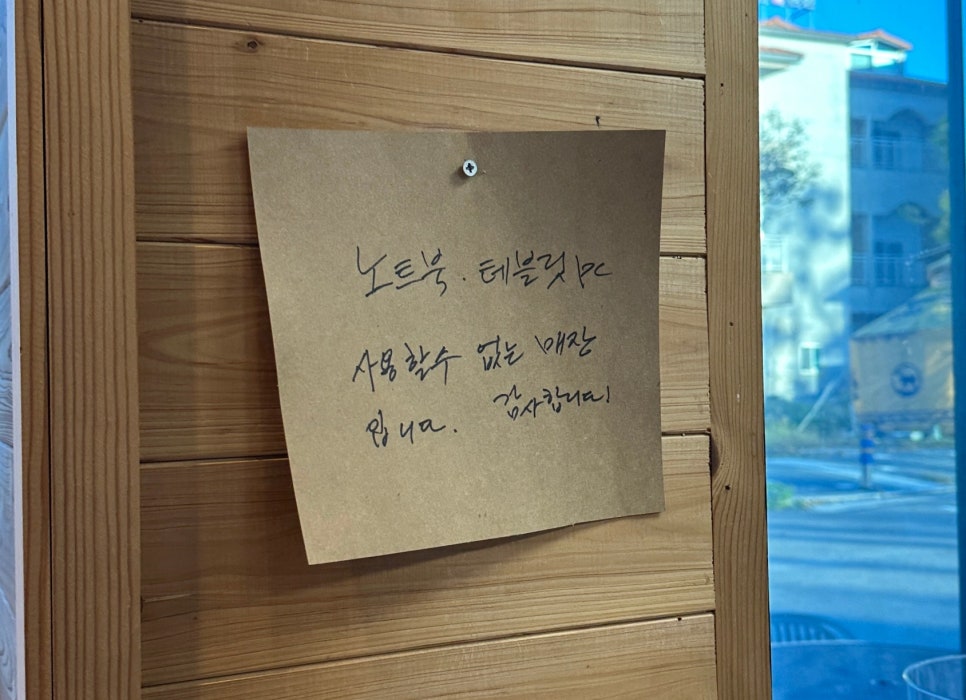 노트북. 테블릿 pc
사용할수 없는 매잔
입니다. 감사합니다!